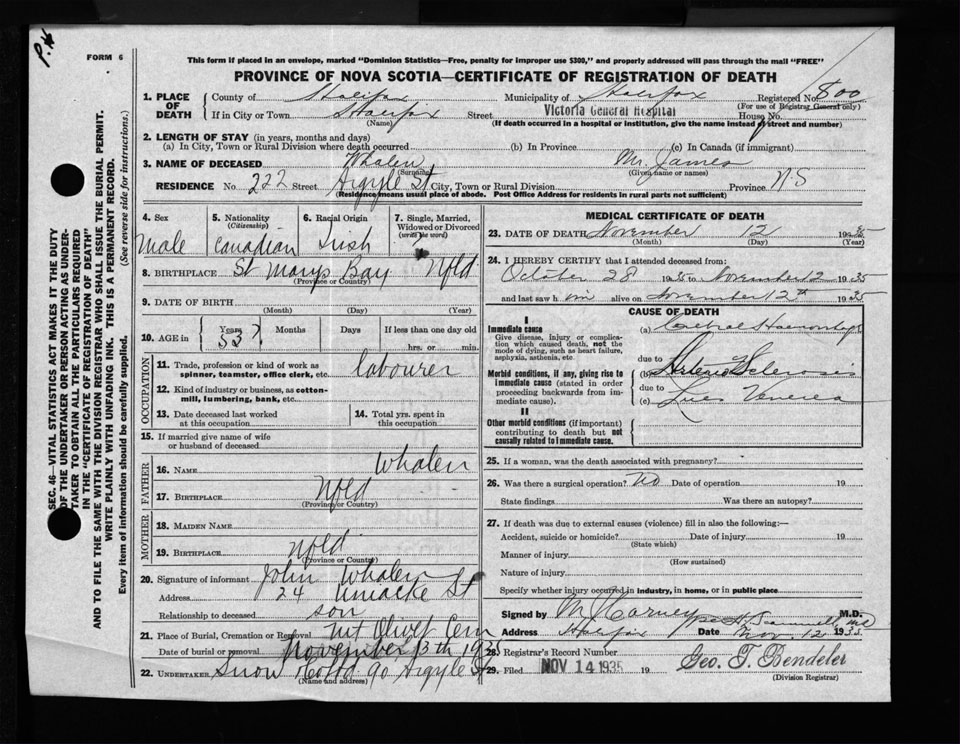 P.
FORM 6
This form if placed in an envelope, marked "Dominion Statistics—Free, penalty for improper use $300," and properly addressed will pass through the mail "FREE"
PROVINCE OF NOVA SCOTIA—CERTIFICATE OF REGISTRATION OF DEATH
SEC. 46—VITAL STATISTICS ACT MAKES IT THE DUTY
OF THE UNDERTAKER OR PERSON ACTING AS UNDER-
TAKER TO OBTAIN ALL THE PARTICULARS REQUIRED
IN THE "CERTIFICATE OF REGISTRATION OF DEATH"
AND TO FILE THE SAME WITH THE DIVISION REGISTRAR WHO SHALL ISSUE THE BURIAL PERMIT.
WRITE PLAINLY WITH UNFADING INK. THIS IS A PERMANENT RECORD.
Every item of information should be carefully supplied. (See reverse side for instructions.)
1. PLACE OF DEATH County of Halifax Municipality of Halifax Registered No. 800
(For use of Registrar General only)
If in City or Town Halifax Street Victoria General Hospital House No.
(Name) (If death occurred in a hospital or institution, give the name instead of street and number)
2. LENGTH OF STAY (in years, months and days)
(a) In City, Town or Rural Division where death occurred (b) In Province (c) In Canada (if immigrant)
3. NAME OF DECEASED Whalen Mr. James
(Surname) (Given name or names)
RESIDENCE No. 222 Street Argyle St City, Town or Rural Division Province N S
(Residence means usual place of abode. Post Office Address for residents in rural parts not sufficient)
4. Sex 5. Nationality (Citizenship) 6. Racial Origin 7. Single, Married, Widowed or Divorced (write the word)
Male Canadian Irish
8. BIRTHPLACE St Marys Bay Nfld
(Province or Country)
9. DATE OF BIRTH
(Month) (Day) (Year)
10. AGE in Years Months Days If less than one day old
53 ? hrs. or min.
OCCUPATION
11. Trade, profession or kind of work as
spinner, teamster, office clerk, etc. labourer
12. Kind of industry or business, as cotton-
mill, lumbering, bank, etc.
13. Date deceased last worked at this occupation 14. Total yrs. spent in this occupation
15. If married give name of wife
or husband of deceased
FATHER
16. NAME Whalen
17. BIRTHPLACE Nfld
(Province or Country)
MOTHER
18. MAIDEN NAME
19. BIRTHPLACE Nfld
(Province or Country)
20. Signature of informant John Whalen
Address 24 Uniacke St
Relationship to deceased son
21. Place of Burial, Cremation or Removal Mt Olivet Cem
Date of burial or removal November 13th 1935
22. UNDERTAKER Snow Co Ltd 90 Argyle St
(Name and address)
MEDICAL CERTIFICATE OF DEATH
23. DATE OF DEATH November 12 1935
(Month) (Day) (Year)
24. I HEREBY CERTIFY that I attended deceased from:
October 28 1935 to November 12 1935
and last saw him alive on November 12th 1935
CAUSE OF DEATH
I
Immediate cause (a)
Give disease, injury or complica-
tion which caused death, not the
mode of dying, such as heart failure,
asphyxia, asthenia, etc.
due to
Morbid conditions, if any, giving rise to (b) Arterio Sclerosis
immediate cause (stated in order due to
proceeding backwards from im- (c) Lues Venerea
mediate cause).
II
Other morbid conditions (if important)
contributing to death but not
causally related to immediate cause.
25. If a woman, was the death associated with pregnancy?
26. Was there a surgical operation? No Date of operation 19
State findings Was there an autopsy?
27. If death was due to external causes (violence) fill in also the following:—
Accident, suicide or homicide? Date of injury 19
(State which)
Manner of injury
(How sustained)
Nature of injury
Specify whether injury occurred in industry, in home, or in public place
Signed by M.D.
Address Halifax Date Nov. 12 1935
28. Registrar's Record Number
29. Filed NOV 14 1935 19 Geo. T. Bendeler
(Division Registrar)